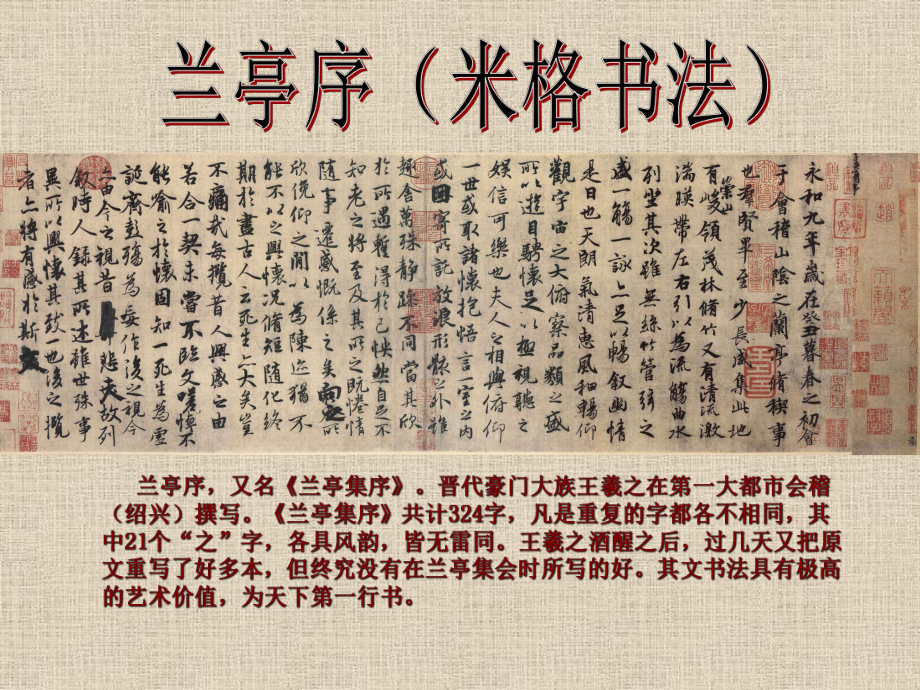 兰亭序（米格书法）
永和九年歲在癸丑暮春之初會
于會稽山陰之蘭亭脩稧事
也羣賢畢至少長咸集此地
有崇山峻領茂林脩竹又有清流激
湍暎帶左右引以為流觴曲水
列坐其次雖無絲竹管弦之
盛一觴一詠亦足以暢叙幽情
是日也天朗氣清惠風和暢仰
觀宇宙之大俯察品類之盛
所以遊目騁懷足以極視聽之
娛信可樂也夫人之相與俯仰
一世或取諸懷抱悟言一室之內
或因寄所託放浪形骸之外雖
趣舍萬殊靜躁不同當其欣
於所遇蹔得於己怏然自足不
知老之將至及其所之既惓情
隨事遷感慨係之矣向之所
欣俛仰之閒以為陳迹猶不
能不以之興懷況脩短隨化終
期於盡古人云死生亦大矣豈
不痛哉每攬昔人興感之由
若合一契未嘗不臨文嗟悼不
能喻之於懷固知一死生為虛
誕齊彭殤為妄作後之視今
亦由今之視昔悲夫故列
叙時人錄其所述雖世殊事
異所以興懷其致一也後之攬
者亦將有感於斯文
兰亭序，又名《兰亭集序》。晋代豪门大族王羲之在第一大都市会稽
（绍兴）撰写。《兰亭集序》共计324字，凡是重复的字都各不相同，其
中21个“之”字，各具风韵，皆无雷同。王羲之酒醒之后，过几天又把原
文重写了好多本，但终究没有在兰亭集会时所写的好。其文书法具有极高
的艺术价值，为天下第一行书。